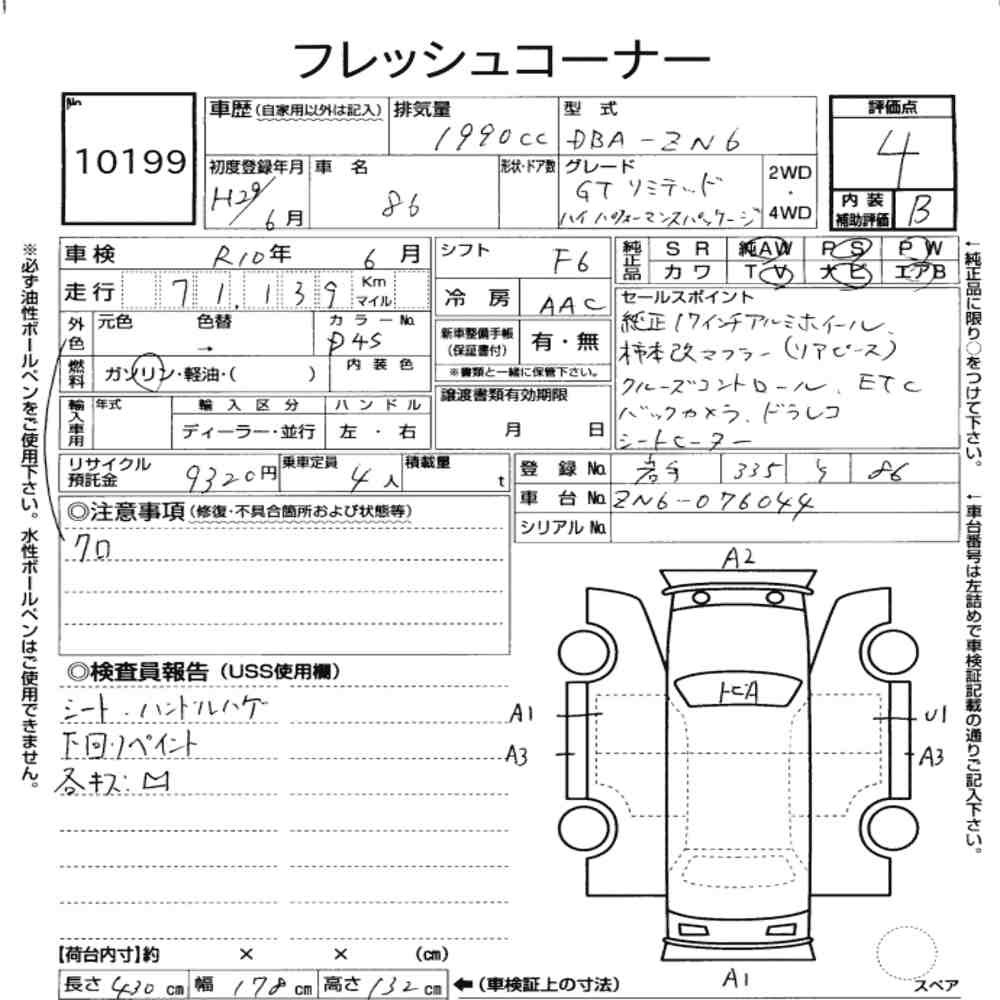 フレッシュコーナー
No.
10199
車歴 (自家用以外は記入)
排気量
1990cc
型 式
DBA-ZN6
評価点
4
初度登録年月
H29/6月
車 名
86
形状・ドア数
グレード
GT リミテッド
ハイパフォーマンスパッケージ
2WD
・
4WD
内 装
補助評価
B
車検 R10年 6月
シフト F6
純正品
SR 純AW PS PW
カワ TV ナビ エアB
走行 71,139 Km マイル
冷 房 AAC
外色
元色 色替 カラーNo.
→ D4S
新車整備手帳
(保証書付)
有・無
※書類と一緒に保管下さい。
燃料
ガソリン・軽油・( )
内 装 色
セールスポイント
純正17インチアルミホイール、
柿本改マフラー(リアピース)
クルーズコントロール、ETC
バックカメラ、ドラレコ
シートヒーター
譲渡書類有効期限
月 日
輸入車用
年式
輸 入 区 分
ハンドル
ディーラー・並行
左 ・ 右
リサイクル
預託金
9320円
乗車定員
4人
積載量
t
登 録 No. 岩手 335 86
車 台 No. ZN6-076044
シリアル No.
◎注意事項 (修復・不具合箇所および状態等)
クロ
◎検査員報告 (USS使用欄)
シート・ハンドルハゲ
下回りペイント
各キズ:
A2
トビA
A1
U1
A3
A3
A1
スペア
【荷台内寸】約 × × (cm)
長さ 430 cm 幅 178 cm 高さ 132 cm ←(車検証上の寸法)
※必ず油性ボールペンをご使用下さい。水性ボールペンはご使用できません。
←純正品に限り○をつけて下さい。
←車台番号は左詰めで車検証記載の通りご記入下さい。